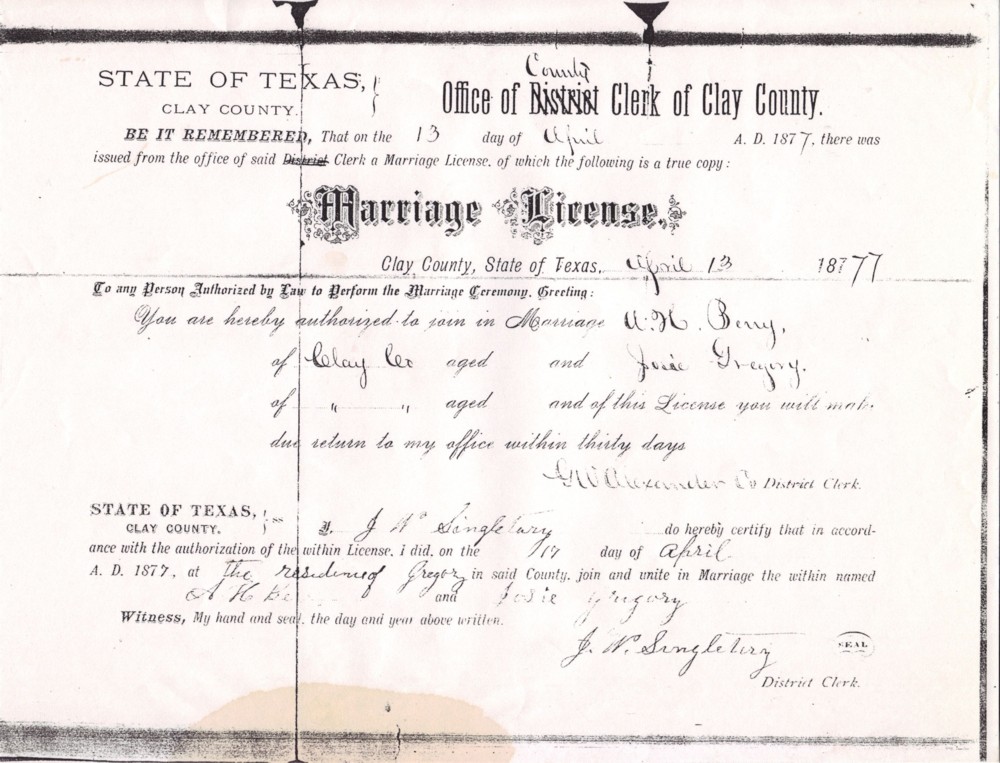 County
STATE OF TEXAS,
CLAY COUNTY.
Office of District Clerk of Clay County.
BE IT REMEMBERED, That on the 13 day of April A. D. 1877, there was
issued from the office of said District Clerk a Marriage License. of which the following is a true copy:
Marriage License.
Clay County, State of Texas, April 13 1877
To any Person Authorized by Law to Perform the Marriage Ceremony, Greeting:
You are hereby authorized to join in Marriage A. H. Berry,
of Clay Co aged and Josie Gregory.
of " " aged and of this License you will make
due return to my office within thirty days
GW Alexander Co District Clerk.
STATE OF TEXAS,
CLAY COUNTY.
I, J W Singletary do hereby certify that in accord-
ance with the authorization of the within License, i did, on the 17 day of April
A. D. 1877, at the residence of Gregory in said County, join and unite in Marriage the within named
A H and Josie Gregory
Witness, My hand and seal, the day and year above written.
J. W. Singletary
SEAL
District Clerk.